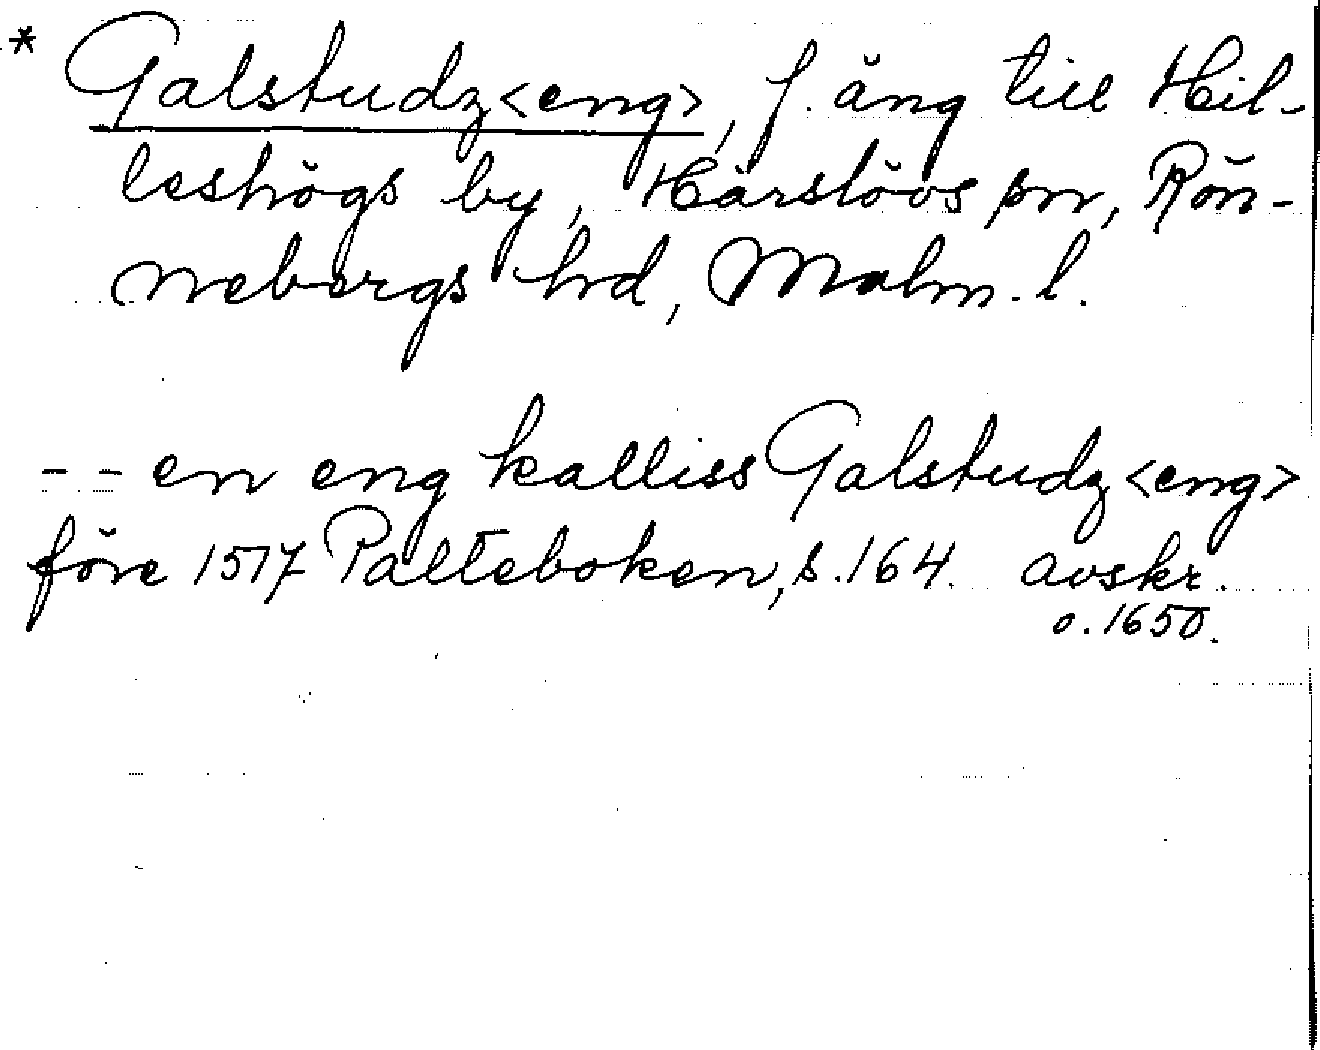 * Galstudz<eng>, f. äng till Hil-
leshögs by, Härslövs sn, Rön-
nebergs hrd, Malm. l.
-- en eng kalliss Galstudz<eng>
före 1517 Palteboken, s. 164. avskr.
o. 1650.